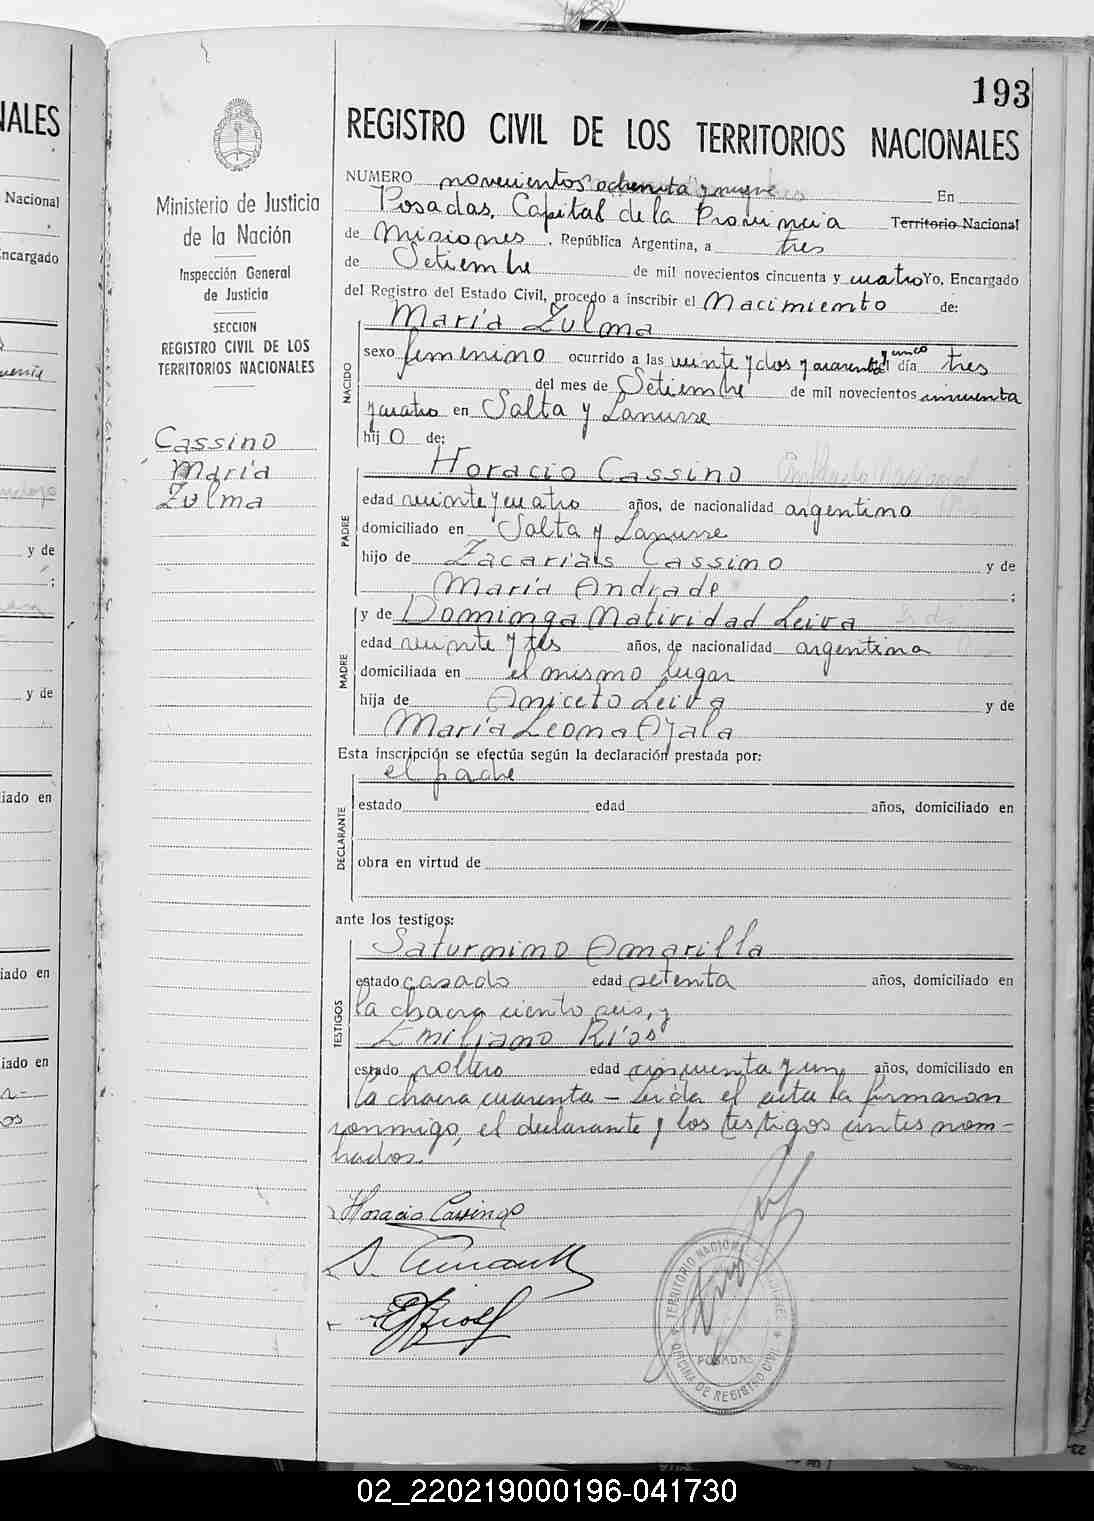 193
REGISTRO CIVIL DE LOS TERRITORIOS NACIONALES
NUMERO novecientos ochenta y nueve En
Posadas, Capital de la Provincia Territorio Nacional
de Misiones, República Argentina, a tres
de Setiembre de mil novecientos cincuenta y cuatro Yo, Encargado
del Registro del Estado Civil, procedo a inscribir el Nacimiento de:
NACIDO
María Zulma
sexo femenino ocurrido a las veinte y dos y cuarenta y cinco el día tres
del mes de Setiembre de mil novecientos cincuenta
y cuatro en Salta y Lanusse
hij a de:
PADRE
Horacio Cassino
edad veinte y cuatro años, de nacionalidad argentino
domiciliado en Salta y Lanusse
hijo de Zacarías Cassino y de
María Andrade ;
MADRE
y de Dominga Natividad Leiva
edad veinte y tres años, de nacionalidad argentina
domiciliada en el mismo lugar
hija de Aniceto Leiva y de
María Leona Ayala
Esta inscripción se efectúa según la declaración prestada por:
el padre
DECLARANTE
estado edad años, domiciliado en
obra en virtud de
ante los testigos:
TESTIGOS
Saturnino Amarilla
estado casado edad setenta años, domiciliado en
la chacra ciento seis, y
Emiliano Ríos
estado soltero edad cincuenta y un años, domiciliado en
la chacra cuarenta – Leída el acta la firmaron
conmigo, el declarante y los testigos antes nom-
brados.
Horacio Cassino
Ministerio de Justicia
de la Nación
Inspección General
de Justicia
SECCION
REGISTRO CIVIL DE LOS
TERRITORIOS NACIONALES
Cassino
María
Zulma
TERRITORIO NACIONAL
POSADAS
OFICINA DE REGISTRO CIVIL
NALES
Nacional
ncargado
y de
;
y de
iado en
iado en
iado en
02_220219000196-041730